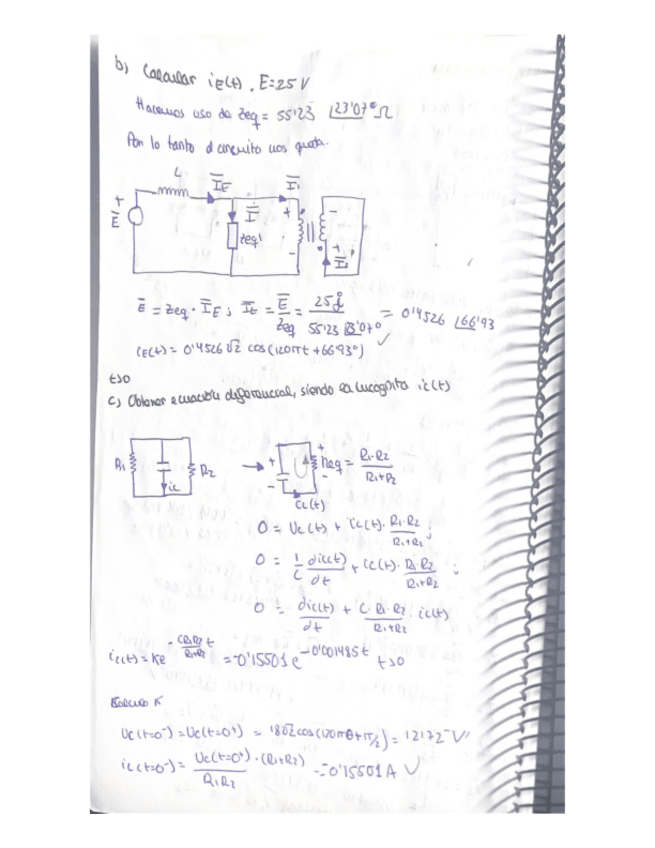 b) Calcular iE(t), E=25 V
Hacemos uso de Zeq = 55'23 ∠23'07° Ω
Por lo tanto el circuito nos queda.
L
I̅E
I̅
+
E̅
I̅
Zeq'
+
-
-
+
E̅ = Zeq · I̅E ; I̅E = E̅/Zeq = 25j/55'23 ∠23'07° = 0'4526 ∠66'93
iE(t) = 0'4526 √2 cos(120πt + 66'93°) ✓
t>0
c) Obtener ecuación diferencial, siendo la incógnita ic(t)
R1
ic
R2
+
-
+
-
Req = R1·R2/R1+R2
ic(t)
0 = Uc(t) + ic(t) · R1·R2/R1+R2 ;
0 = 1/C dic(t)/dt + ic(t) · R1·R2/R1+R2 ;
0 = dic(t)/dt + C·R1·R2/R1+R2 · ic(t)
ic(t) = Ke^-CR1R2/R1+R2 t = -0'15501 e^-0'001485t t>0
K
Uc(t=0-) = Uc(t=0+) = 18√2 cos(120π0+π/2) = 12'172 V
ic(t=0-) = Uc(t=0+)·(R1+R2)/R1R2 = -0'15501 A ✓